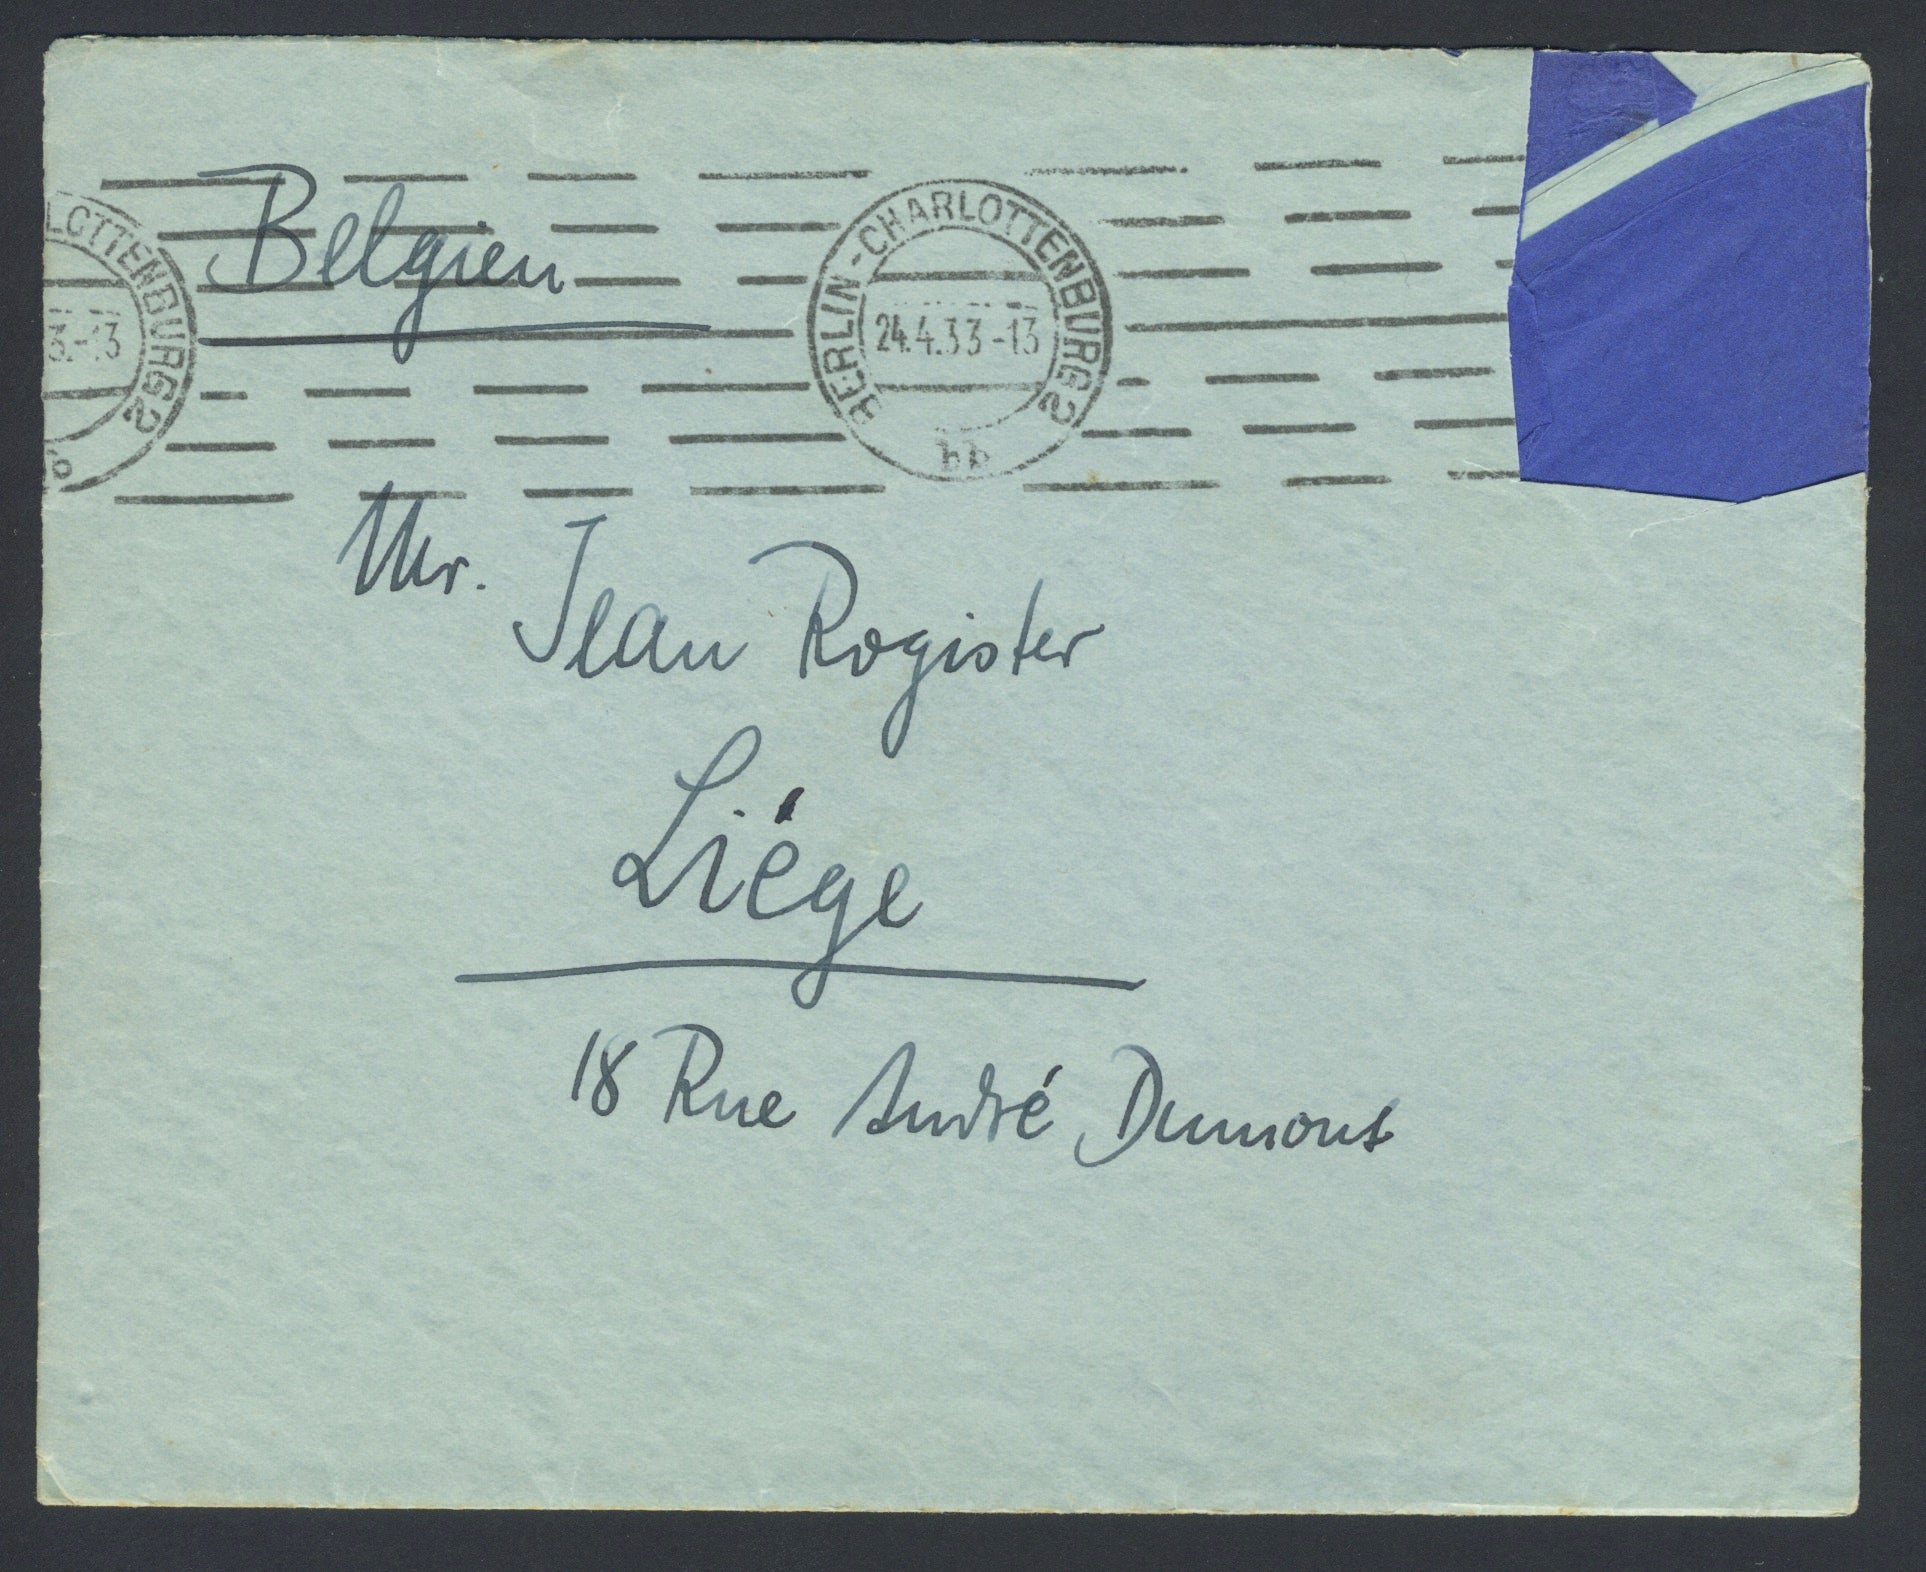 Belgien
LOTTENBURG 2
3.-13
BERLIN-CHARLOTTENBURG 2
24.4.33-13
bb
Mr. Jean Rogister
Liége
18 Rue André Dumont